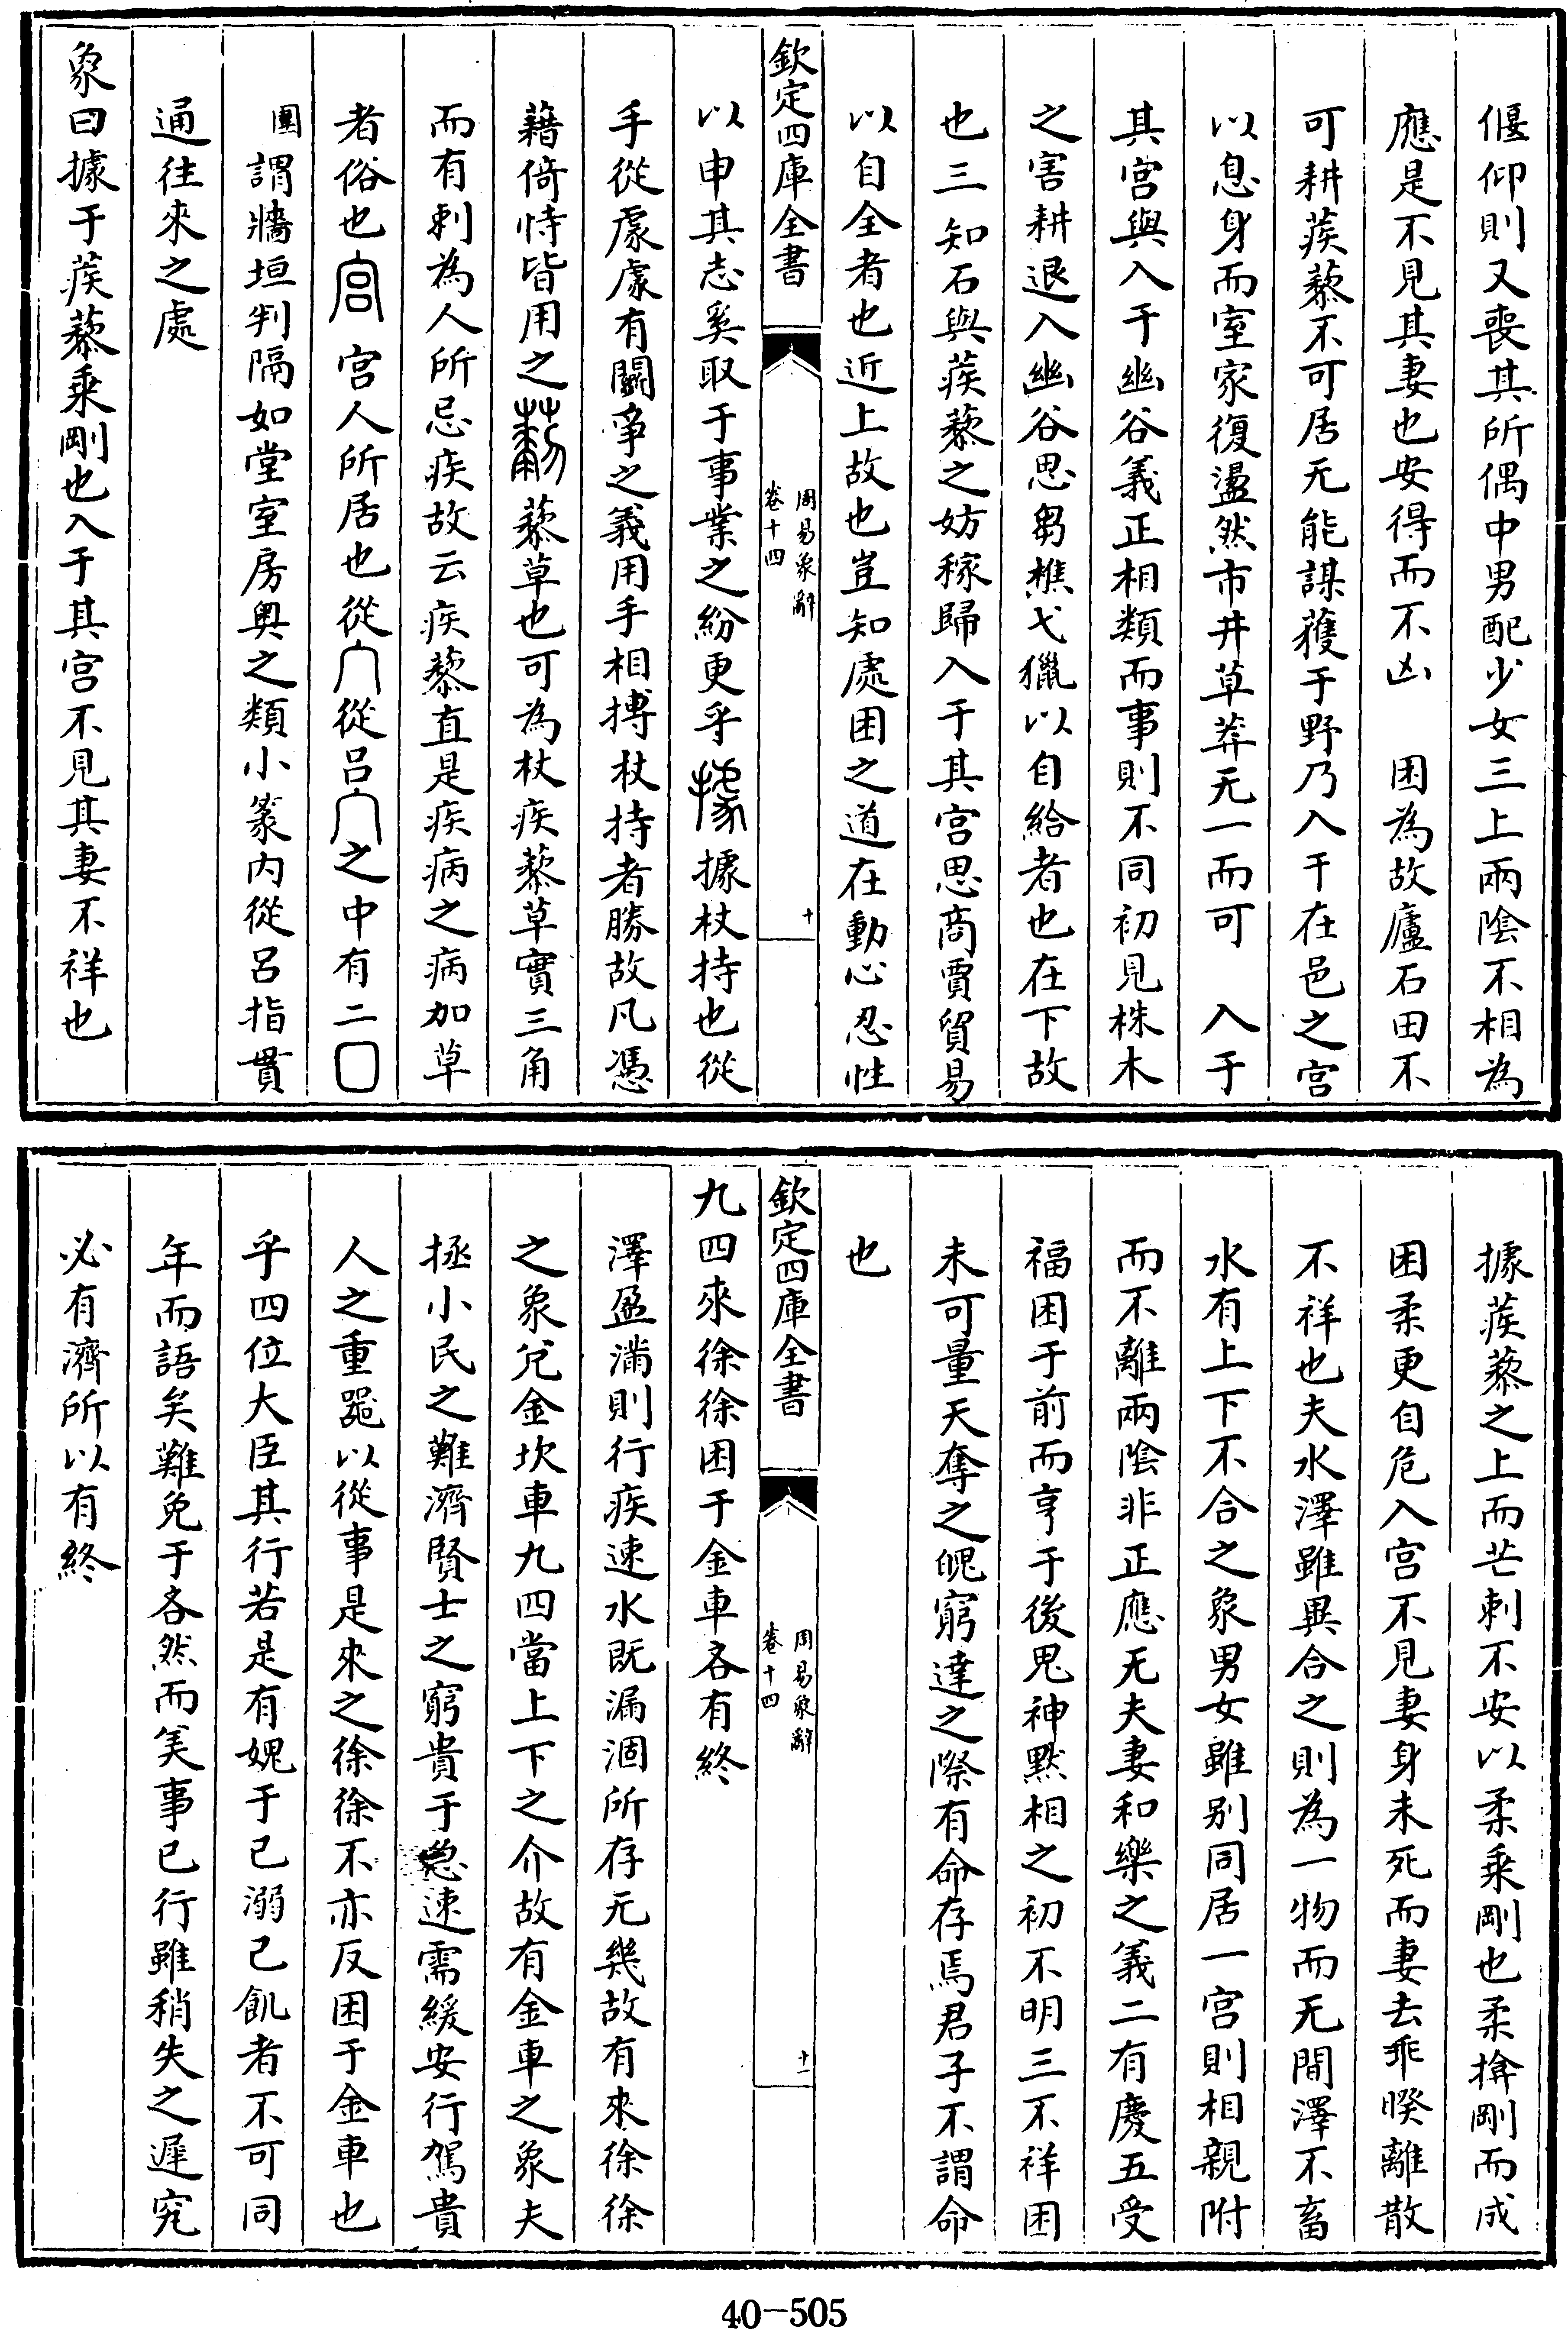 偃仰則又喪其所偶中男配少女三上兩陰不相為
應是不見其妻也安得而不凶　困為故廬石田不
可耕蒺藜不可居无能謀穫于野乃入于在邑之宫
以息身而室家復盪然市井草莽无一而可　入于
其宫與入于幽谷義正相類而事則不同初見株木
之害耕退入幽谷思芻樵弋獵以自給者也在下故
也三知石與蒺藜之妨稼歸入于其宫思商賈貿易
以自全者也近上故也豈知處困之道在動心忍性
欽定四庫全書
周易象辭
卷十四
十
以申其志奚取于事業之紛更乎據杖持也從
手從豦豦有鬭爭之義用手相搏杖持者勝故凡憑
藉倚恃皆用之藜草也可為杖疾藜草實三角
而有刺為人所忌疾故云疾藜直是疾病之病加草
者俗也宫宫人所居也從宀從吕宀之中有二口
圍謂牆垣判隔如堂室房奥之類小篆内從呂指貫
通往來之處
象曰據于蒺藜乘剛也入于其宫不見其妻不祥也
據蒺藜之上而芒刺不安以柔乘剛也柔揜剛而成
困柔更自危入宫不見妻身未死而妻去乖暌離散
不祥也夫水澤雖異合之則為一物而无間澤不畜
水有上下不合之象男女雖别同居一宫則相親附
而不離兩陰非正應无夫妻和樂之義二有慶五受
福困于前而亨于後鬼神黙相之初不明三不祥困
未可量天奪之魄窮達之際有命存焉君子不謂命
也
欽定四庫全書
周易象辭
卷十四
十一
九四來徐徐困于金車吝有終
澤盈滿則行疾速水既漏涸所存无幾故有來徐徐
之象兊金坎車九四當上下之介故有金車之象夫
拯小民之難濟賢士之窮貴于急速需緩安行駕貴
人之重噐以從事是來之徐徐不亦反困于金車也
乎四位大臣其行若是有媿于己溺己飢者不可同
年而語矣難免于吝然而美事已行雖稍失之遲究
必有濟所以有終
40-505